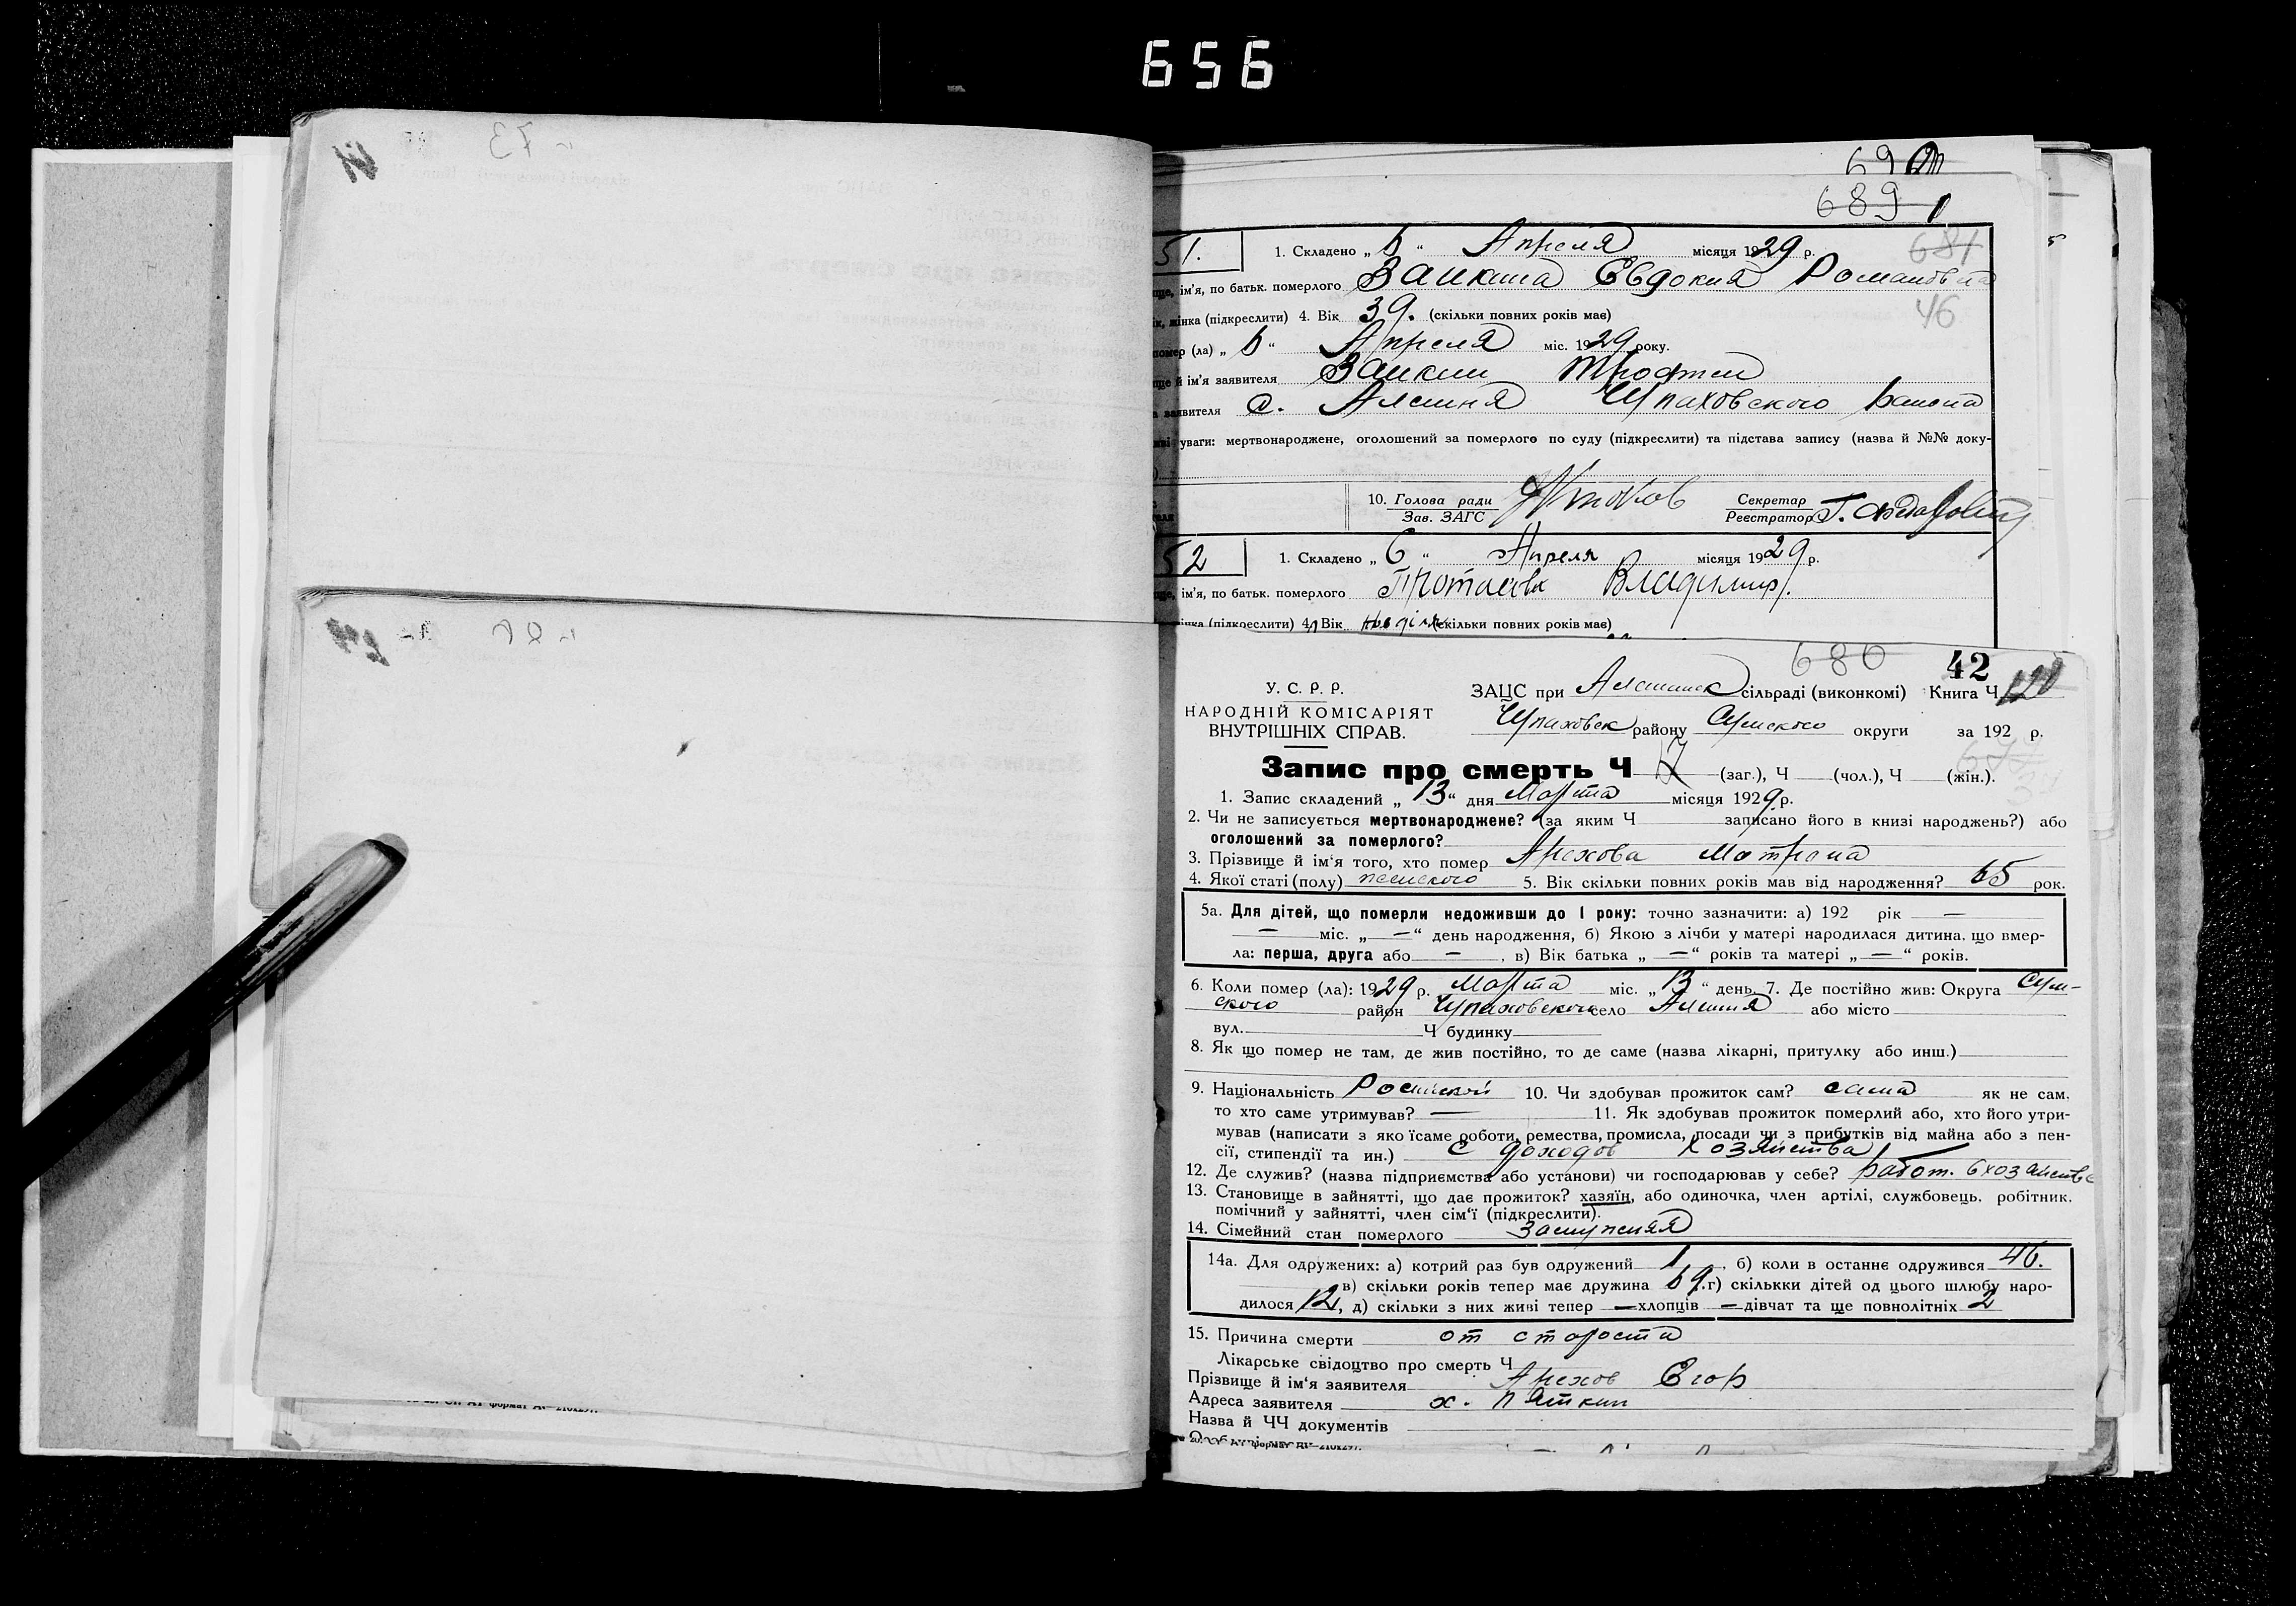 656
690
689
51.
1. Складено „ 6 “ Апреля місяця 1929 р.
681
ім'я, по батьк. померлого Заикина Евдокия Романовна
46
жінка (підкреслити) 4. Вік 39. (скільки повних років має)
помер (ла) „ 6 “ Апреля міс. 1929 року.
й ім'я заявителя Заикин
заявителя с. Алешня Чупаховского района
уваги: мертвонароджене, оголошений за померлого по суду (підкреслити) та підстава запису (назва й №№ доку-
10. Голова ради Секретар
Зав. ЗАГС Реєстратор
52
1. Складено „ 6 “ Апреля місяця 1929 р.
ім'я, по батьк. померлого Владимир
(підкреслити) 4. Вік (скільки повних років має)
680 42
У. С. Р. Р.
НАРОДНІЙ КОМІСАРІЯТ
ВНУТРІШНІХ СПРАВ.
ЗАЦС при сільраді (виконкомі) Книга Ч 120
Чупаховск району Сумского округи за 192 р.
Запис про смерть Ч 17 (заг.), Ч (чол.), Ч (жін.).
1. Запис складений „ 13 “ дня Марта місяця 1929 р.
2. Чи не записується мертвонароджене? (за яким Ч записано його в книзі народжень?) або
оголошений за померлого?
3. Прізвище й ім'я того, хто помер Арехова Матрона
4. Якої статі (полу) женского 5. Вік скільки повних років мав від народження? 65 рок.
5а. Для дітей, що померли недоживши до 1 року: точно зазначити: а) 192 рік —
— міс. „ — “ день народження, б) Якою з лічби у матері народилася дитина, що вмер-
ла: перша, друга або — , в) Вік батька „ — “ років та матері „ — “ років.
6. Коли помер (ла): 1929 р. Марта міс. „ 13 “ день. 7. Де постійно жив: Округа Сум-
ского район Чупаховского село Алешня або місто
вул. Ч будинку
8. Як що помер не там, де жив постійно, то де саме (назва лікарні, притулку або инш.)
9. Національність 10. Чи здобував прожиток сам? сама як не сам,
то хто саме утримував? — 11. Як здобував прожиток померлий або, хто його утри-
мував (написати з яко їсаме роботи, ремества, промисла, посади чи з прибутків від майна або з пен-
сії, стипендії та ин.) с доходов хозяйства
12. Де служив? (назва підприємства або установи) чи господарював у себе? работ. в хозяйстве
13. Становище в зайнятті, що дає прожиток? хазяїн, або одиночка, член артілі, службовець, робітник.
помічний у зайнятті, член сім'ї (підкреслити).
14. Сімейний стан померлого замужняя
14а. Для одружених: а) котрий раз був одружений 1, б) коли в останнє одружився 46.
в) скільки років тепер має дружина 69. г) скількки дітей од цього шлюбу наро-
дилося 12, д) скільки з них живі тепер — хлопців — дівчат та ще повнолітніх 2
15. Причина смерти от старости
Лікарське свідоцтво про смерть Ч
Прізвище й ім'я заявителя Арехов Егор
Адреса заявителя х. Пяткин
Назва й ЧЧ документів